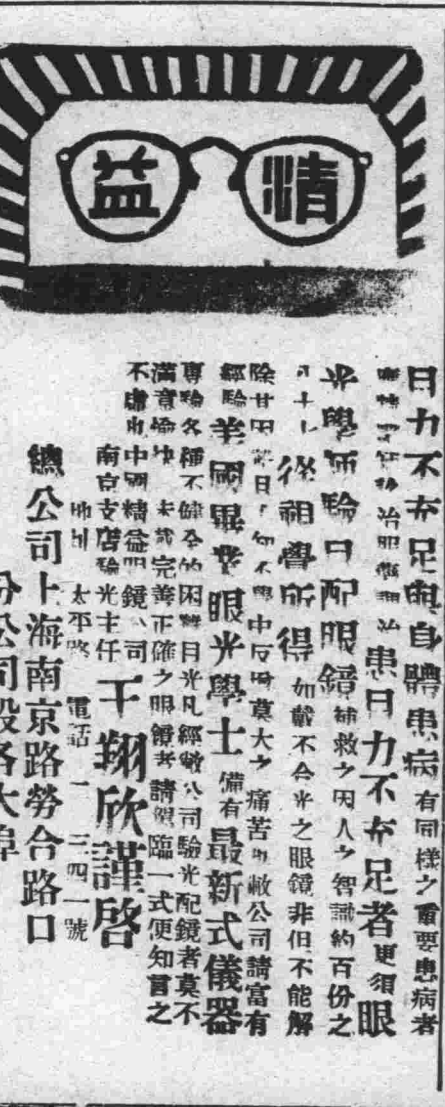 精益
目力不充足與自體患病有同樣之重要患病者
治服藥調治患目力不充足者更須眼
光學師驗目配眼鏡補救之因人之智識約百份之
從視覺所得如戴不合光之眼鏡非但不能解
除其困難且學中反增莫大之痛苦敝公司請富有
經驗美國畢業眼光學士備有最新式儀器
專驗各種不健全的困難目光凡經敝公司驗光配鏡者莫不
滿意愉快未試完善正確之眼鏡者請駕臨一式便知言之
不虛也中國精益眼鏡公司
南京支店驗光主任王翔欣謹啓
地址太平路電話二三四一號
總公司上海南京路勞合路口
分公司設各大埠